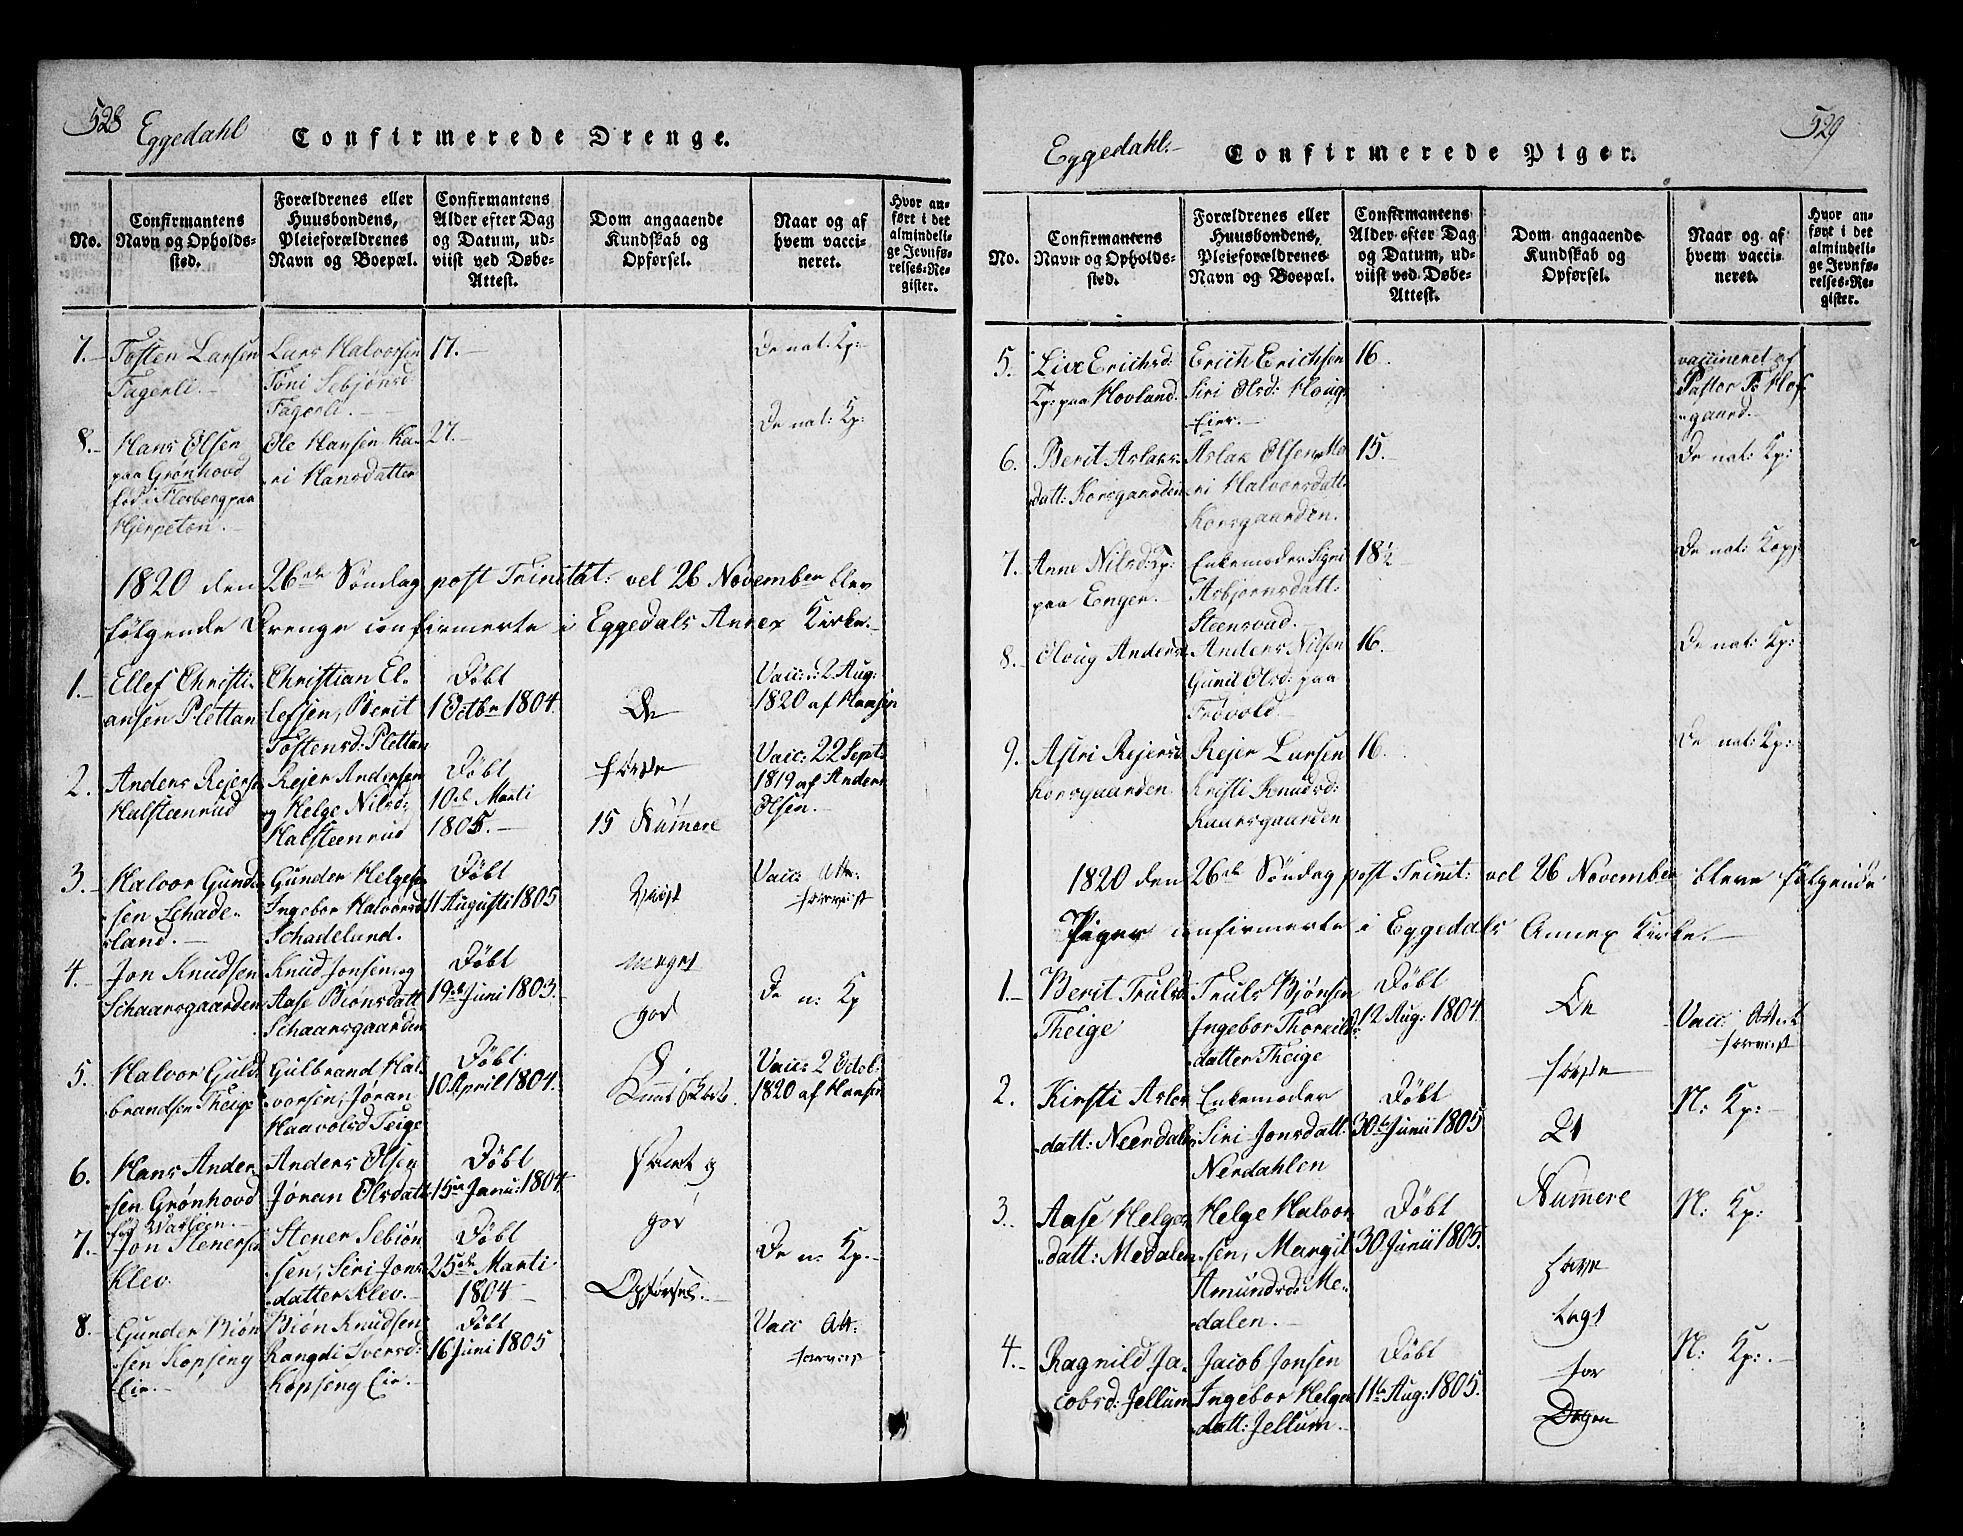 528
Eggedahl Confirmerede Drenge.
No.
Confirmantens
Navn og Opholds-
sted.
Forældrenes eller
Huusbondens,
Pleieforældrenes
Navn og Boepæl.
Confirmantens
Alder efter Dag
og Datum, ud-
viist ved Døbe-
Attest.
Dom angaaende
Kundskab og
Opførsel.
Naar og af
hvem vacci-
neret.
Hvor an-
ført i det
almindeli-
ge Jevnfø-
relses-Re-
gister.
7.-
Tosten Larsen
Fagerli.-
Lars Halvorsen
Toni Sebjønsd
Fagerli.-
17.-
De nat: Kp:
8.-
Hans Olsen
paa Grønhovd
fød i Flesberg paa
Hjerpeton.-
Ole Hansen Ka-
ri Hansdatter
27.-
De nat: Kp:
1820 den 26de Søndag post Trinitat: vel 26 November blev
følgende Drenge confirmerte i Eggedals Annex Kirke.-
1.-
Ellef Christi-
ansen Plettan
Christian El-
lefsen, Berit
Tostensd: Plettan
Døbt
1 Octbr 1804.
Vacc: 2 Aug:
1820 af Hansen
2.
Anders Rejersen
Halsteenrud
Rejer Andersen
og Helge Nilsd:
Halsteenrud
Døbt
10de Marti
1805.-
Vacc: 22 Sept
1819 af Anders
Olsen.-
3.-
Halvor Gunder
sen Schade-
land.-
Gunder Helgesen
Ingebor Halvorsd
Schadeland.
Døbt
11 Augusti 1805
Vacc Att:
forevist
4.-
Jon Knudsen
Schaarsgaarden
Knud Jonsen, og
Aase Biønsdatt
Schaarsgaarden
Døbt
19de Juni 1803.
De n: Kp
5.
Halvor Guld
brandsen Theige
Gulbrand Hal-
vorsen, Jøran
Haavolsd Teige
Døbt
10 April 1804.
Vacc: 2 Octob.
1820 af Hansen
6.
Hans Ander-
sen Grønhovd
Anders Olsen
Jøran Olsdatt:
Døbt
15de Janu: 1804.
7.-
Jon Stenersen
Klev.
Stener Sebiøn
sen, Siri Jons
datter Klev.-
Døbt
25de Marti
1804-
De n: Kp.-
8.-
Gunder Biøn
sen Kopseng
Eie.-
Biøn Knudsen
Rangdi Iversd:
Kopseng Eie.-
Døbt
16 Juni 1805
Vacc Att:
forevist
De
første
15 Numere
meget
god
Kundskab.
samt og
god
Opførsel.-
529
Eggedahl:- Confirmerede Piger.
No.
Confirmantens
Navn og Opholds-
sted.
Forældrenes eller
Huusbondens,
Pleieforældrenes
Navn og Boepæl.
Confirmantens
Alder efter Dag
og Datum, ud-
viist ved Døbe-
Attest.
Dom angaaende
Kundskab og
Opførsel.
Naar og af
hvem vacci-
neret.
Hvor an-
ført i det
almindeli-
ge Jevnfø-
relses-Re-
gister.
5.
Live Erichsd:
Kp: paa Hovland.
Erich Erichsen
Siri Olsd: Houg
Eier.-
16.
vaccineret af
Pastor T: Hof
gaard.-
6.
Berit Aslaks-
datt: Korsgaarden
Aslak Olsen, Ma
ri Halvorsdatt:
Korsgaarden.
15.-
De nat: Kp:
7.
Anne Nilsd: Kp:
paa Enger.-
Enkemoder Signi
Asbjørnsdatt:
Steensrud.-
18½
De nat: Kopp:
8.-
Oloug Andersd
Anders Nilsen
Gunil Olsd: paa
Frøvold.-
16.-
De nat: Kp:
9.
Astri Rejersd
Korsgaarden
Rejer Larsen
Kristi Knudsd:
Kaarsgaarden
16.
De nat: Kp:
1820 den 26de Søndag post Trinit: vel 26 November bleve følgende
Piger confirmerte i Eggedals Annex Kirke.-
1.-
Berit Trulsd:
Theige
Truls Bjønsen
Ingebor Thorkilds
datter Theige
Døbt
12 Aug: 1804.
Vacc: Attest
forevist
2.
Kirsti Asles
datt: Neerdalen
Enkemoder
Siri Jonsdatt:
Nerdahlen
Døbt
30te Junii 1805
N: Kp:-
3.
Aase Helges
datt: Medalen
Helge Halvor
sen, Margit
Amundsd: Me-
dalen.-
Døbt
30 Junii 1805.
N: Kp:
4.-
Ragnild Ja-
cobsd: Jellum
Jacob Jonsen
Ingebor Helges
datt: Jellum.-
Døbt
11te Aug: 1805.
N: Kp:.-
De
første
21
Numere
have
lagt
for
Dagen